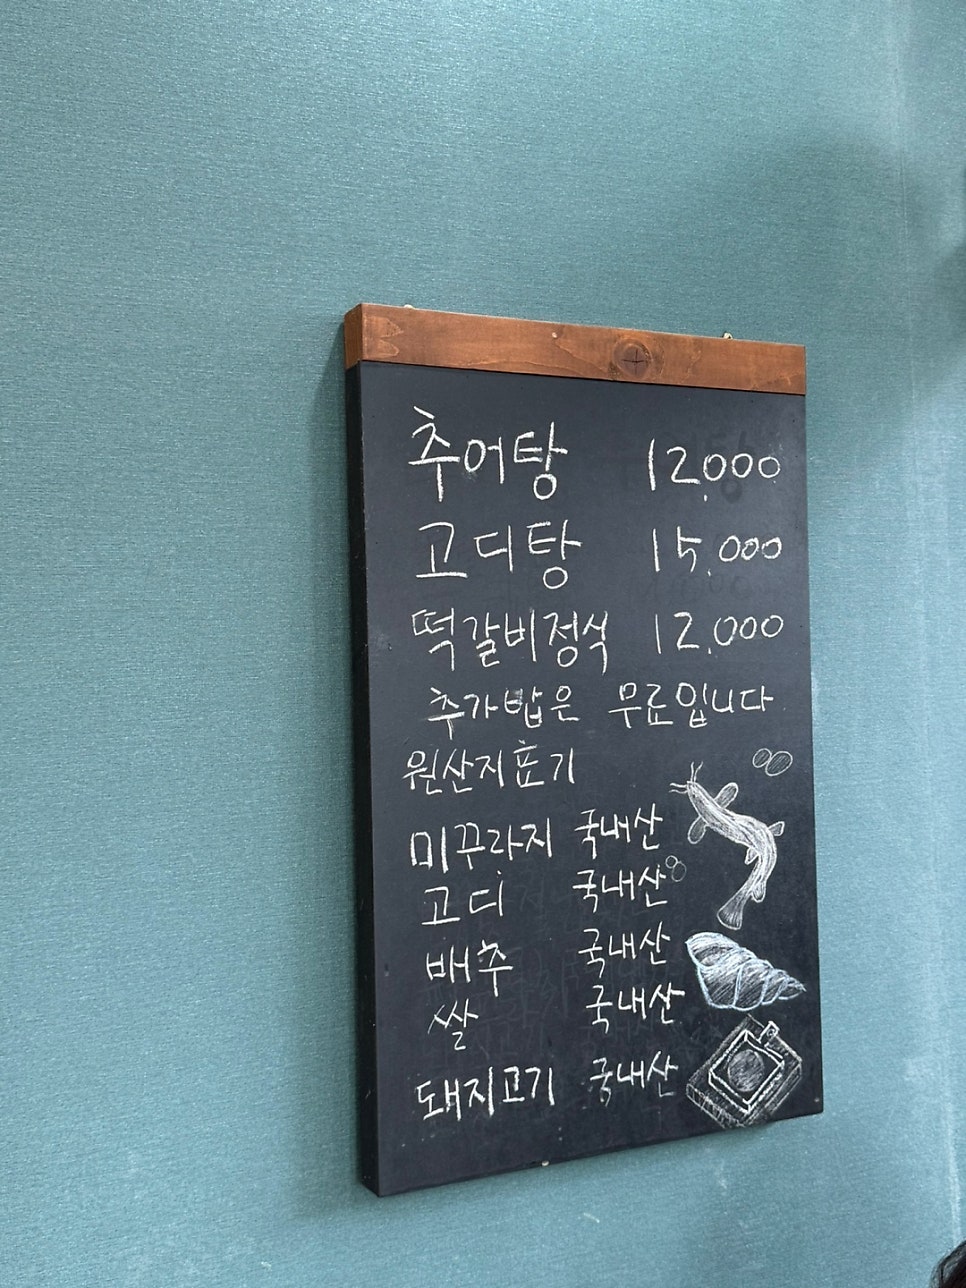 추어탕 12,000
고디탕 15,000
떡갈비정식 12,000
추가밥은 무료입니다
원산지표기
미꾸라지 국내산
고디 국내산
배추 국내산
쌀 국내산
돼지고기 국내산